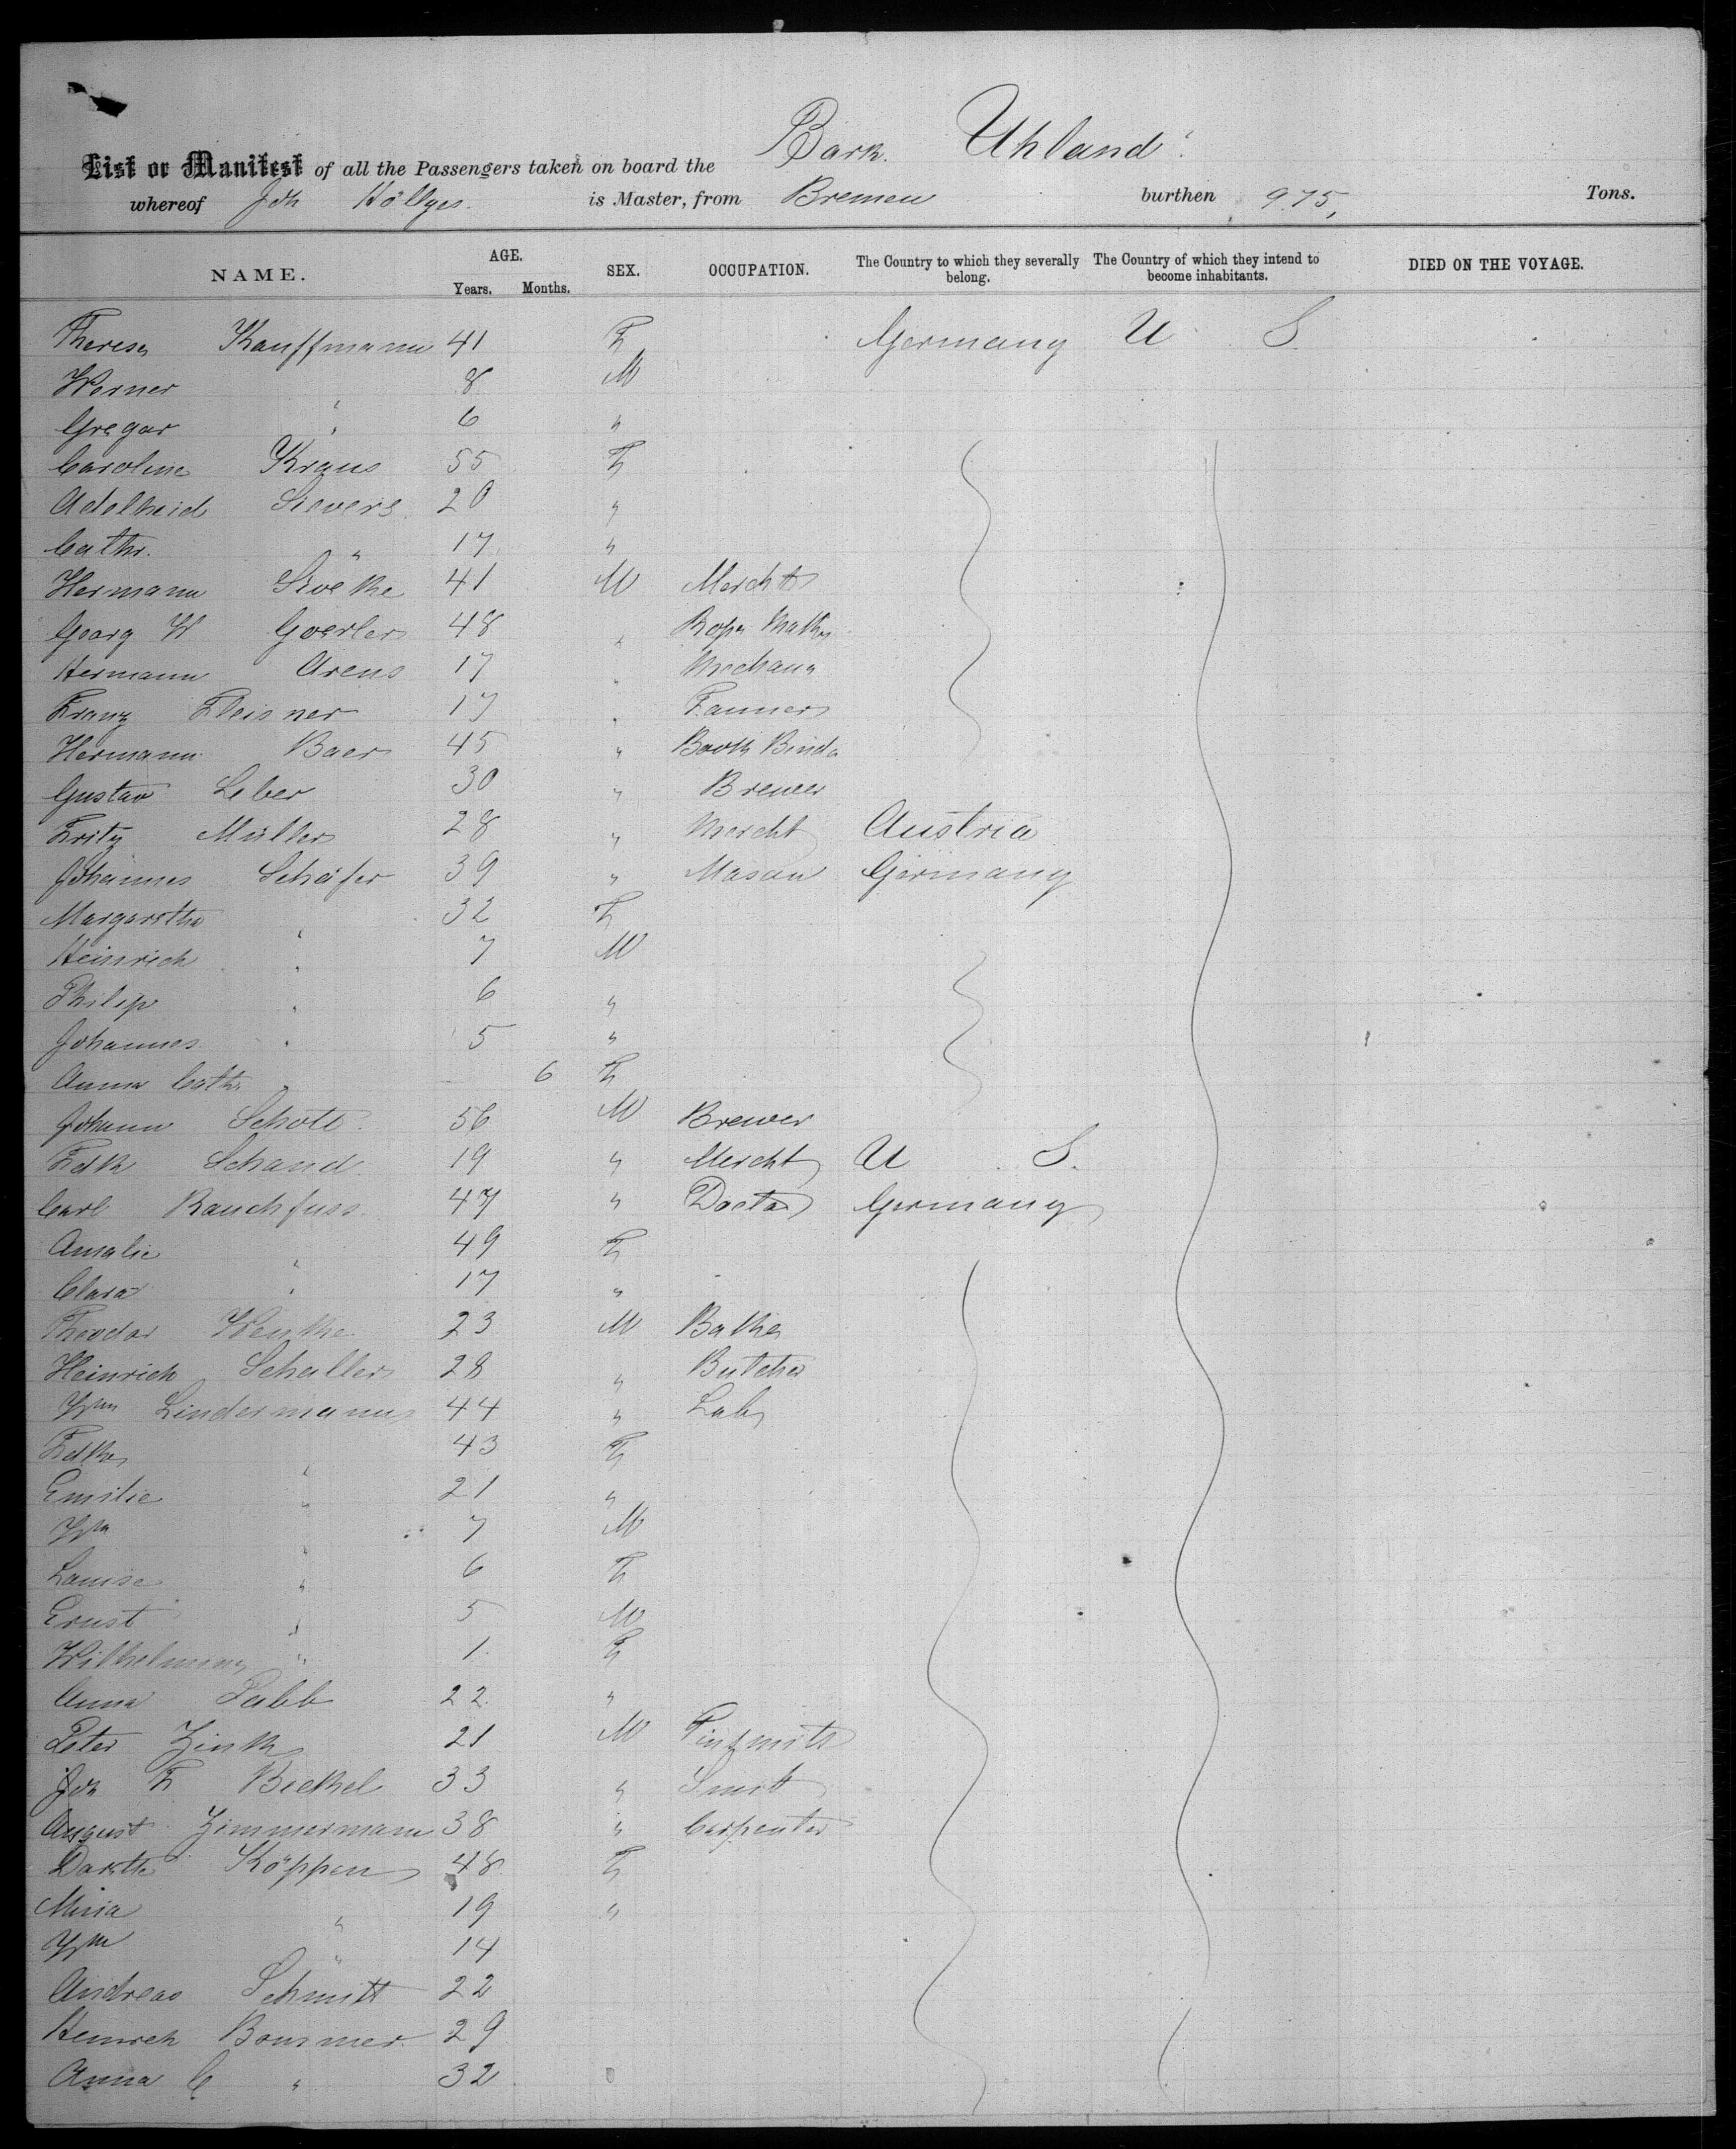 Bark. Uhland.
List or Manifest of all the Passengers taken on board the
whereof Joh Höllyes. is Master, from Bremen burthen 975, Tons.
NAME. AGE. Years. Months. SEX. OCCUPATION. The Country to which they severally belong. The Country of which they intend to become inhabitants. DIED ON THE VOYAGE.
Theresa Kauffmann 41 F Germany U S
Werner 8 M
Gregor " 6 "
Caroline Kraus 55 F
Adelheid Sievers 20 "
Cathr. " 17 "
Hermann 41 M Mercht
Georg W Goerler 48 " Rope
Hermann Arens 17 "
Franz Fleisner 17 "
Hermann Baer 45 " Book Bind
Gustav Leber 30 " Brewer
Fritz Müller 28 " Mercht Austria
Johannes Schäfer 39 " Mason Germany
Margaretha " 32 F
Heinrich " 7 M
Philip " 6 "
Johannes " 5 "
Anna Cath. " 6 F
Johann Schott 56 M Brewer
Fdk Schand 19 " Mercht U S.
Carl Rauchfuss. 47 " Doctor Germany
Amalie " 49 F
Clara " 17 "
Theodor Wenke 23 M
Heinrich Schaller 28 " Butcher
Wm Lindermann 44 " Lab
Fdke " 43 F
Emilie " 21 "
Wm " 7 M
Louise " 6 F
Ernst " 5 M
Wilhelmine " 1 F
Anna 22 "
Peter Zink 21 M Tinsmith
Joh F Bechel 33 " Smith
August Zimmermann 38 " Carpenter
Dorothe Köppen 48 F
Mina " 19 "
Wm " 14
Andreas Schmitt 22
Heinrich Bommer 29
Anna C " 32